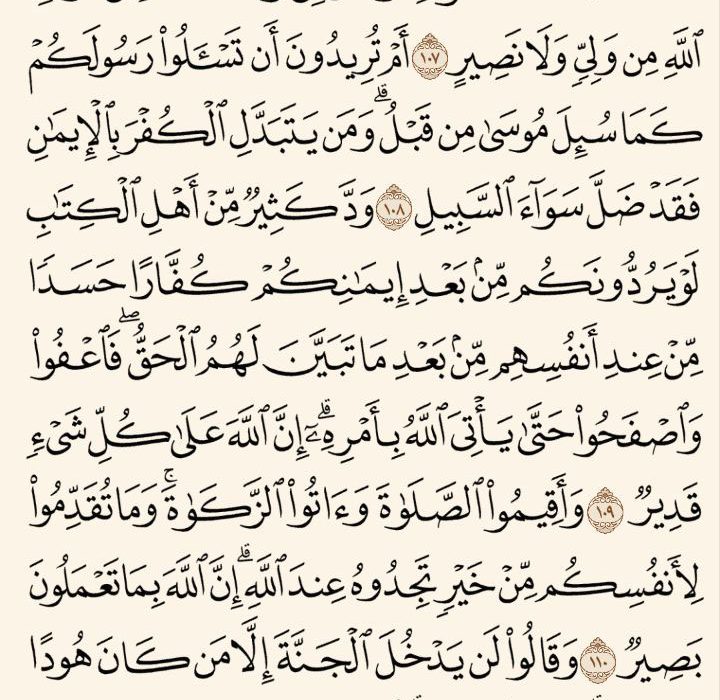 ٱللَّهِ مِن وَلِيٍّ وَلَا نَصِيرٍ ١٠٧ أَمْ تُرِيدُونَ أَن تَسْـَٔلُوا۟ رَسُولَكُمْ
كَمَا سُئِلَ مُوسَىٰ مِن قَبْلُ ۗ وَمَن يَتَبَدَّلِ ٱلْكُفْرَ بِٱلْإِيمَـٰنِ
فَقَدْ ضَلَّ سَوَآءَ ٱلسَّبِيلِ ١٠٨ وَدَّ كَثِيرٌ مِّنْ أَهْلِ ٱلْكِتَـٰبِ
لَوْ يَرُدُّونَكُم مِّنۢ بَعْدِ إِيمَـٰنِكُمْ كُفَّارًا حَسَدًا
مِّنْ عِندِ أَنفُسِهِم مِّنۢ بَعْدِ مَا تَبَيَّنَ لَهُمُ ٱلْحَقُّ ۖ فَٱعْفُوا۟
وَٱصْفَحُوا۟ حَتَّىٰ يَأْتِىَ ٱللَّهُ بِأَمْرِهِۦٓ ۗ إِنَّ ٱللَّهَ عَلَىٰ كُلِّ شَىْءٍ
قَدِيرٌ ١٠٩ وَأَقِيمُوا۟ ٱلصَّلَوٰةَ وَءَاتُوا۟ ٱلزَّكَوٰةَ ۚ وَمَا تُقَدِّمُوا۟
لِأَنفُسِكُم مِّنْ خَيْرٍ تَجِدُوهُ عِندَ ٱللَّهِ ۗ إِنَّ ٱللَّهَ بِمَا تَعْمَلُونَ
بَصِيرٌ ١١٠ وَقَالُوا۟ لَن يَدْخُلَ ٱلْجَنَّةَ إِلَّا مَن كَانَ هُودًا